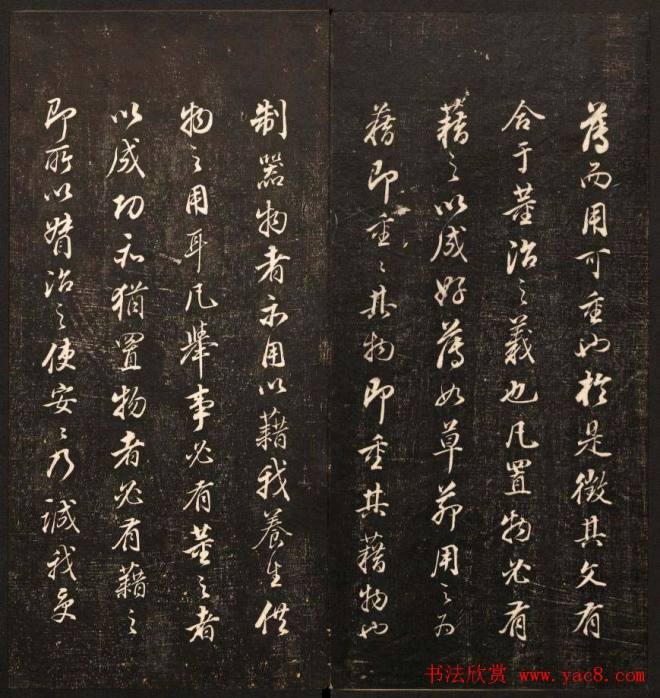 薄而用可重也於是徵其文有
合于董治之義也凡置物必有
藉之以成好薄如草茆用之为
藉即重之其物即重其藉物也
制器物者示用以藉我養生供
物之用耳凡舉事必有董之者
以成功亦猶置物者必有藉之
即所以督治之使安之乃誠我受
书法欣赏 www.yac8.com